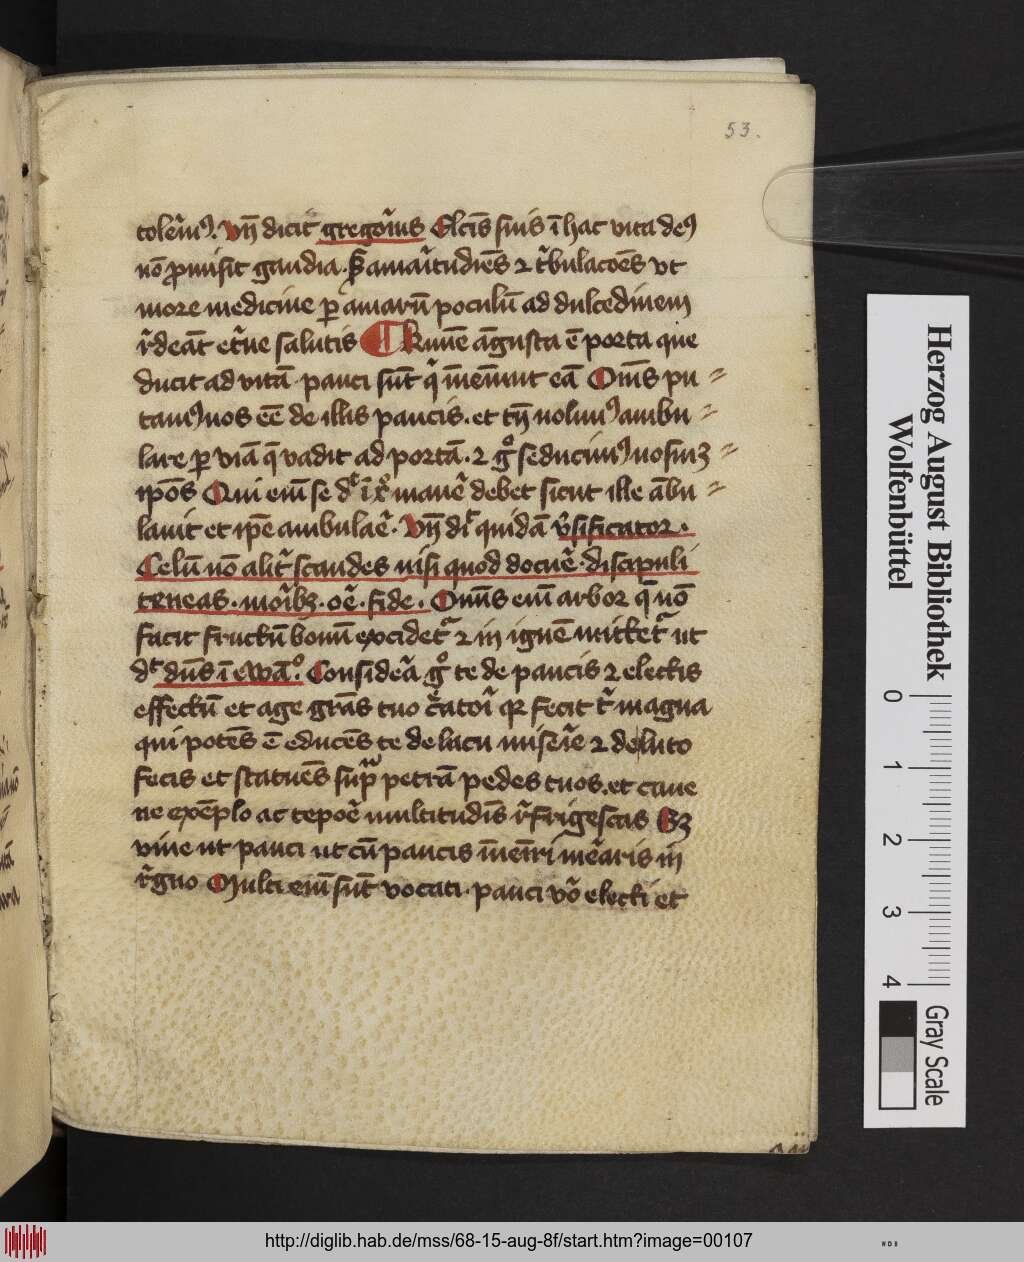 53.
tolerm⁹. Vn̄ dicit gregori᷒us Elcīs suis ī hac vita de⁹
nō ꝓmisit gaudia. sꝫ amaritudiēs ⁊ tͥbulacōēs vt
more medicine ꝑ amarū poculū ad dulcedinem
rͤdeāt etͤne salutis ¶ Kͥmē āgusta ē porta que
ducit ad vitā. pauci sūt qͥ īueīunt eā Om̄s pu =
tam⁹ nos eē de illis paucis. et tn̄ nolum⁹ ambu =
lare ꝑ viā q̄ vadit ad portā. ⁊ gͦ seducim⁹ nosmꝫ =
ipōs Qui eīm se dͨt ī xͦ manē debet sicut ille ābu =
lauit et ip̄e ambulaē. Vn̄ dt̄ quidā v̄sificator.
Celū nō alit̄ scandes nisi quod docuē. discipuli
teneas. moribꝫ. oē. fide. Om̄is eīm arbor q̄ nō
facit fructū bonū excidet᷑ ⁊ in ignē mittet᷑ ut
dt̄ dn̄s ī ewā.ᵒ Considēa gͦ te de paucis ⁊ electis
effectū et age grās tuo cͤatoͥ qꝛ fecit tͥ magna
qui potēs ē educēs te de lacu miserīe ⁊ de luto
fecis et statuēs supͣ petrā pedes tuos. et caue
ne exēplo ac tepoē multitudīs rͤfrigescas Sꝫ
viue ut pauci ut cū paucis īueīri mēaris in
rͤgno Multi eīm sūt vocati. pauci vͦo electi et
Herzog August Bibliothek
Wolfenbüttel
0 1 2 3 4
Gray Scale
http://diglib.hab.de/mss/68-15-aug-8f/start.htm?image=00107
WDB